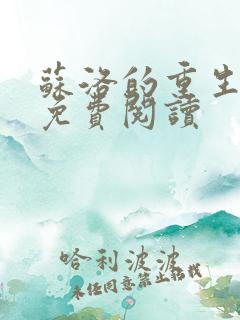 蘇洛的重生
免費閱讀
哈利波波
未經同意禁止轉載